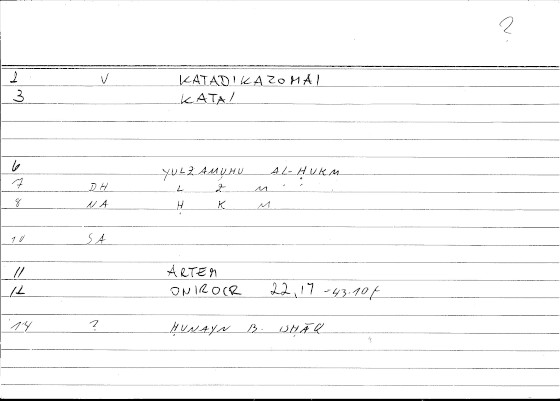 ?
1 V KATADIKAZOMAI
3 KATAI
6 YULZAMUHU AL-ḤUKM
7 DH L Z M
8 NA Ḥ K M
10 SA
11 ARTEM
12 ONIROCR 22,17 -43.10f
14 ? ḤUNAYN B. ISḤĀQ